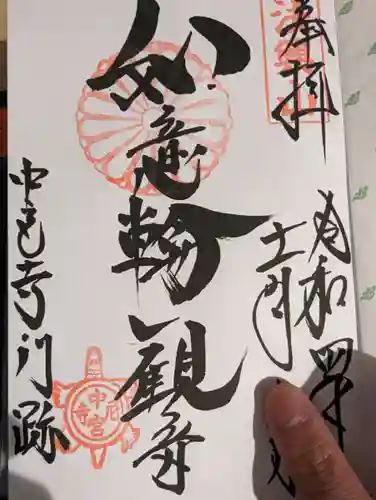 奉拝
令和四年
十一月
如意輪観音
中宮寺門跡
中宮尼寺